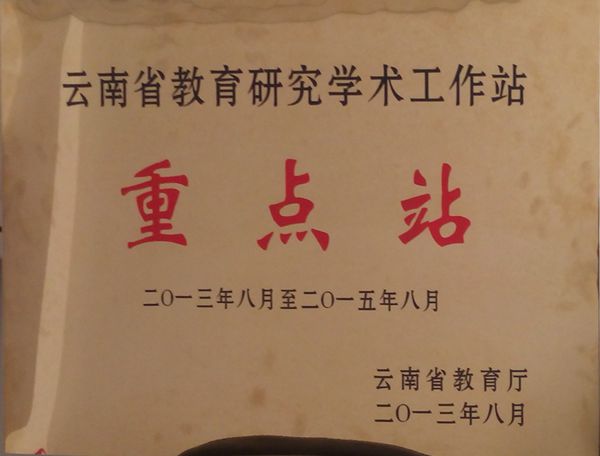 云南省教育研究学术工作站
重点站
二〇一三年八月至二〇一五年八月
云南省教育厅
二〇一三年八月